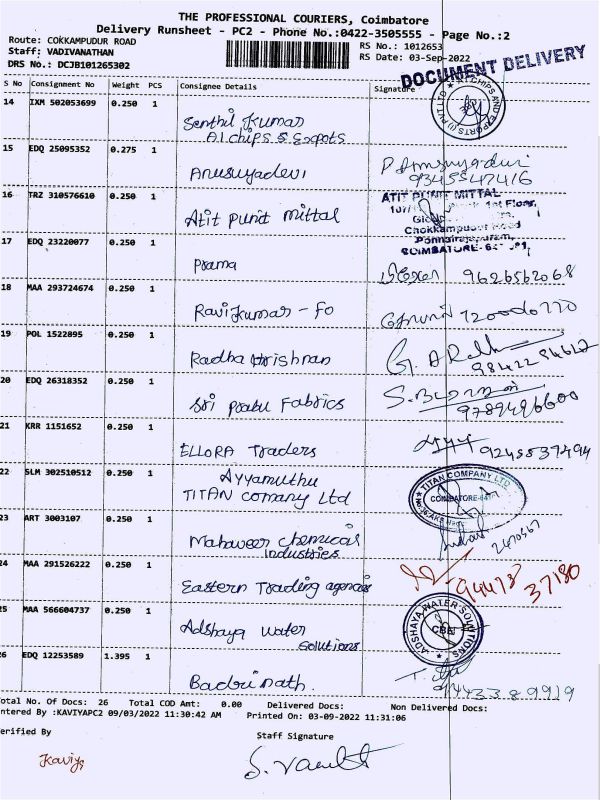 THE PROFESSIONAL COURIERS, Coimbatore
Delivery Runsheet - PC2 - Phone No.:0422-3505555 - Page No.:2
Route: COKKAMPUDUR ROAD
RS No.: 1012653
Staff: VADIVANATHAN
RS Date: 03-Sep-2022
DRS No.: DCJB101265302
DOCUMENT DELIVERY
S No Consignment No Weight PCS Consignee Details Signature
14 IXM 502053699 0.250 1
Senthil Kumar
A1 chips & Expots
15 EDQ 25095352 0.275 1
Anusuyadevi
9345547416
16 TRZ 310576610 0.250 1
Atit punit mittal
ATIT PUNIT MITTAL
1st Floor,
Chokkampudur Road
Ponnairajapuram,
COIMBATORE-641 001
17 EDQ 23220077 0.250 1
Prama
9626562068
18 MAA 293724674 0.250 1
Ravikumar - Fo
19 POL 1522895 0.250 1
Radha krishnan
20 EDQ 26318352 0.250 1
Sri Prabu Fabrics
9789496600
21 KRR 1151652 0.250 1
ELLORA Traders
9245537494
22 SLM 302510512 0.250 1
Ayyamuthu
TITAN Comany Ltd
TITAN COMPANY LTD
23 ART 3003107 0.250 1
Mahaveer Chemical
industries
2470567
24 MAA 291526222 0.250 1
Eastern Trading agencies
94478
37180
25 MAA 566604737 0.250 1
Adshaya water
Solutions
ADSHAYA WATER SOLUTIONS
CBE
26 EDQ 12253589 1.395 1
Badrinath.
9443389919
Total No. Of Docs: 26 Total COD Amt: 0.00 Delivered Docs: Non Delivered Docs:
Entered By :KAVIYAPC2 09/03/2022 11:30:42 AM Printed On: 03-09-2022 11:31:06
Verified By
Staff Signature
Kaviya